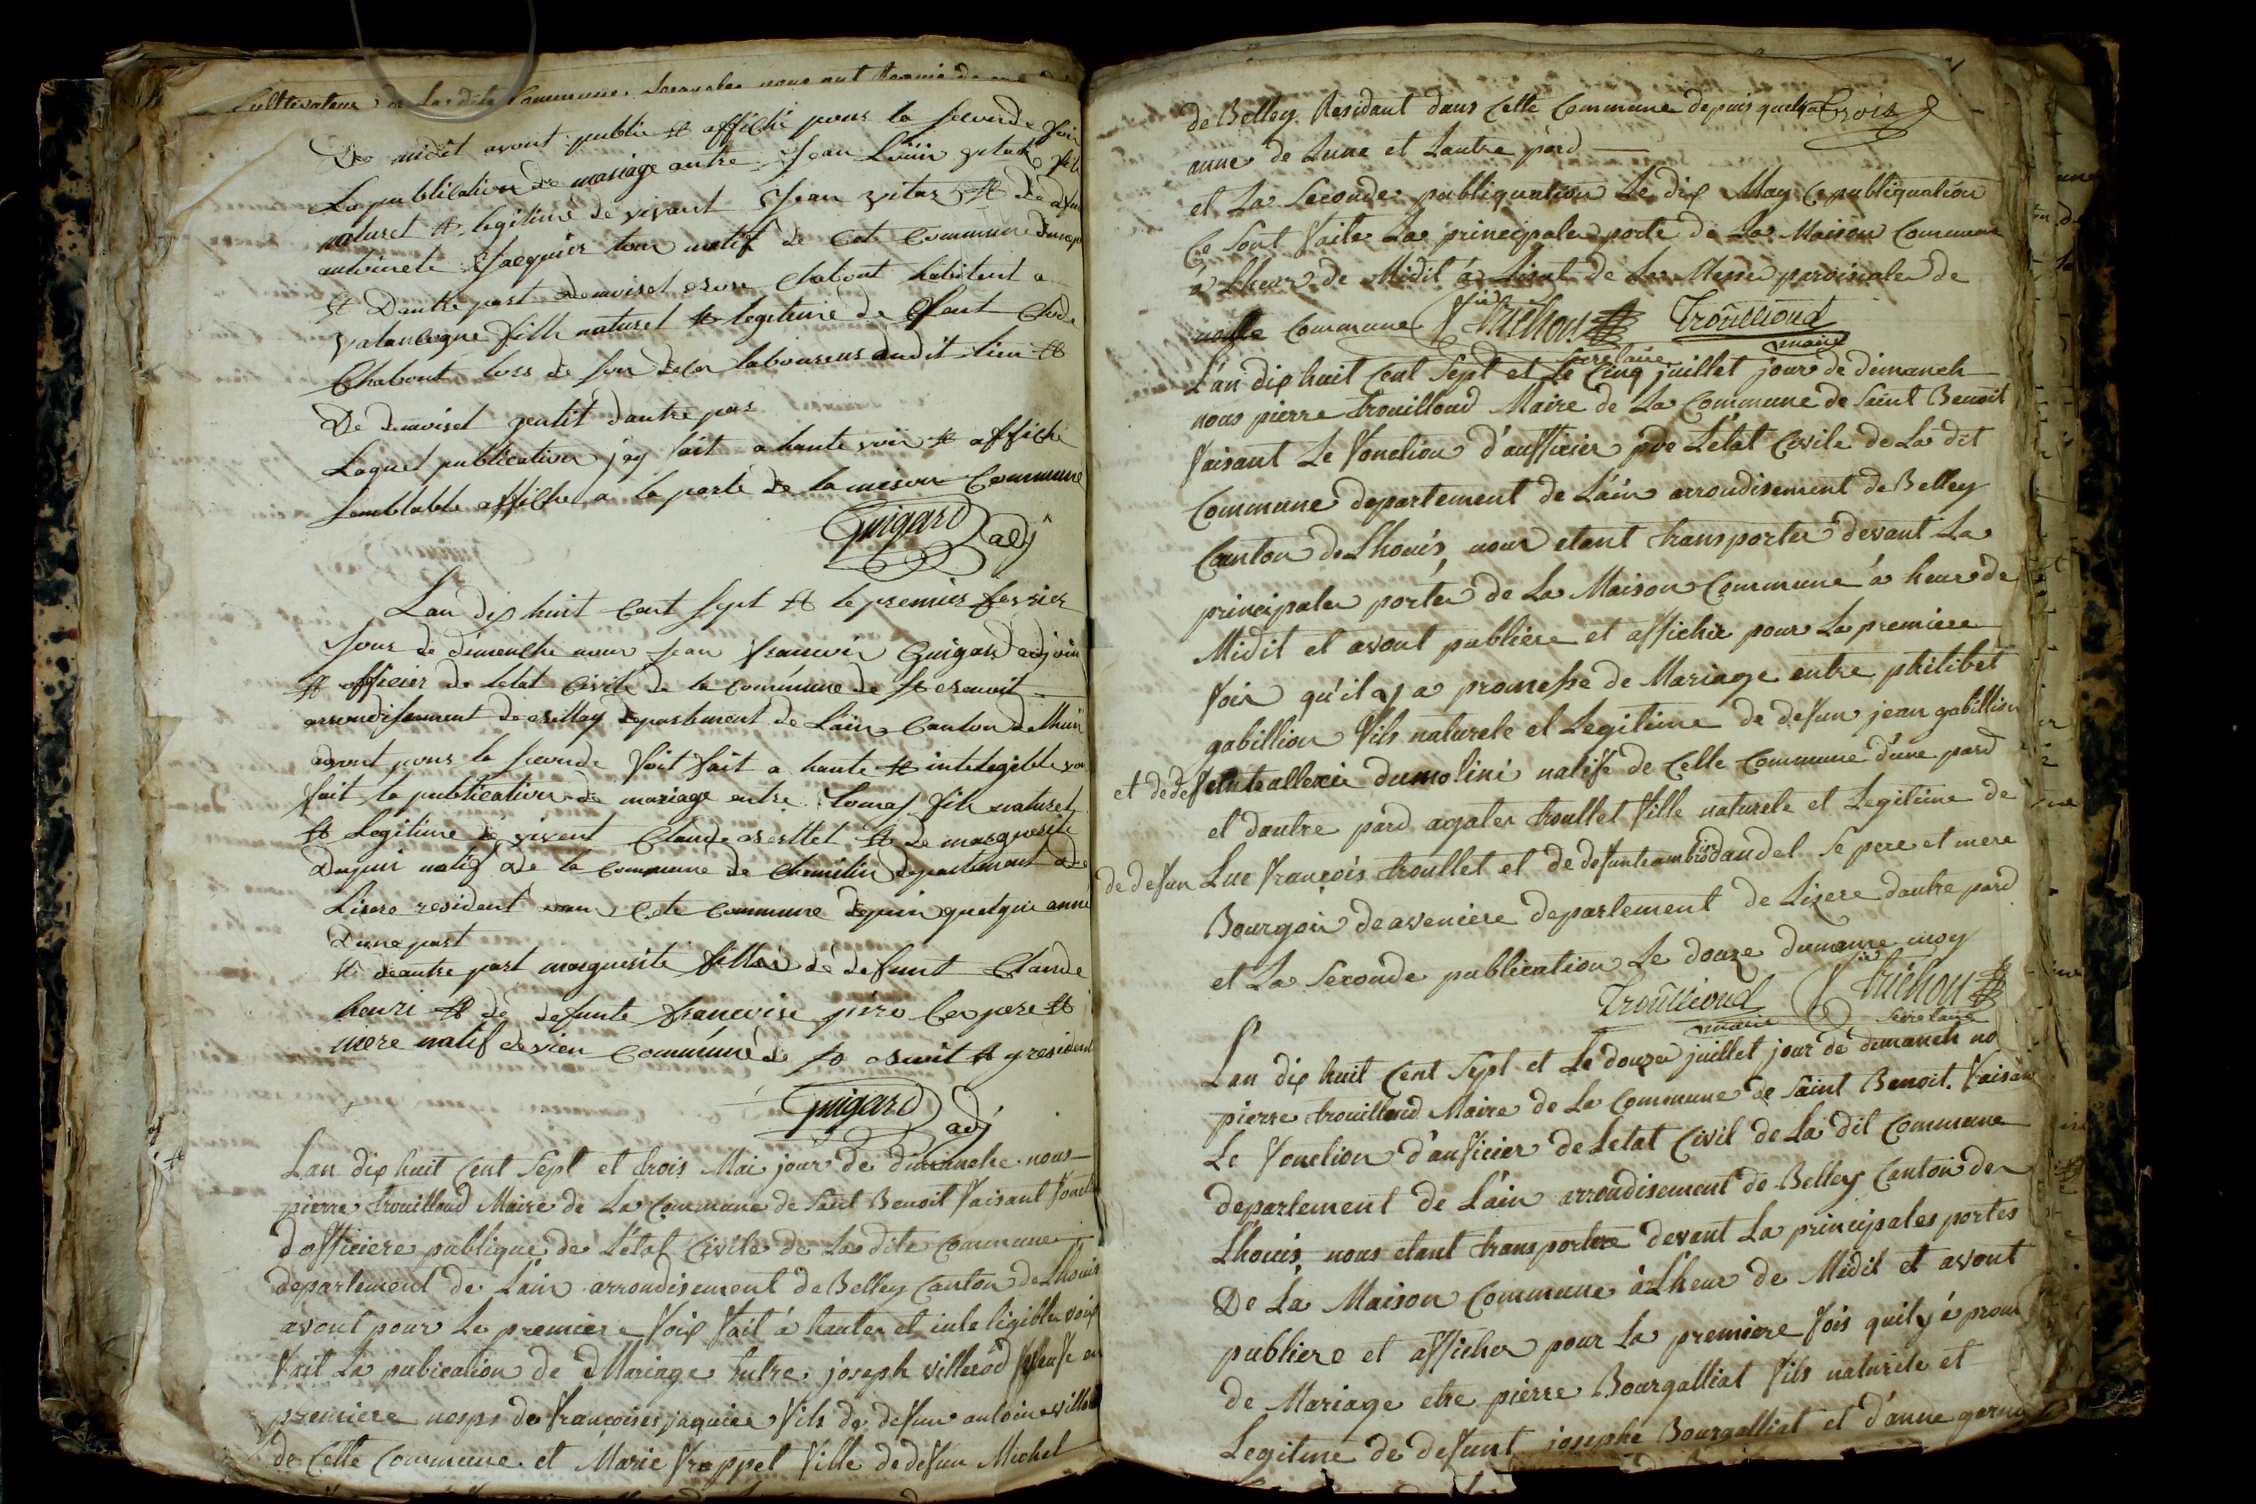 Cultivateur de la dite Commune.
De midit avont publié et affiché pour la seconde fois
La publication de mariage antre Jean Louis vitat fils
naturel et legitime de vivant Jean vitat et de defunt
antoinete Jacquier tous natif de cete Commune d'une part
et Dautre part demoiset Chabout habitent a
valancogne fille naturel et legitime de Claude
Chabout lors de son decer laboureur dudit lieu et
De demoiset gentit dautre par
Laquel publication j'ay fait a haute voix et affiche
Semblable affiche a la porte de la maison Commune
Guigard adj
Lan dix huit Cent sept et le premier fevrier
Jour de dimenche nous Jean francois Guigard adjoin
et officier de letat Civile de la commune de st benoit
arrondisement de belley departement de Lain Canton de lhuis
avont pour la seconde fois fait a haute et inteligible voi
fait la publication de mariage entre tomas fils naturel
et Legitime de vivent Claude et de marguerite
Dupui natif de la commune de Chimilin departement de
Lisere resident dans Cete commune depuis quelque anné
D'une part
et deautre part marguerite fille de defunt Claude
henri et de defunte francoise Ces pere et
mere natif de Commune de st benoit et y resident
Guigard adj
Lan dix huit Cent Sept et trois Mai jour de dimanche nous
pierre trouilloud Maire de La Commune de Saint Benoit Faisant Fonction
dofficiere publique de L'état Civile de La dite Commune
departement de L'ain arrondisement de Belley Canton de Lhouis
avont pour Le premiere Foix Fait á hauter et inteligibler voix
Fait La pubication de Mariage Entre joseph villerod veuf en
premiere nosps de Françoises jaquier Fils de deFun antoine villerod
de Cette Commune et Marie Frappet Fille de deFun Michel
de Belley Residant dans Cette Commune depuis quelque trois
anne de Lune et Lautre pard
et La Seconde publiquation Le dix May Ce publiquation
Ce sont Faite La principaler porte de La Maison Commune
a Lheur de Midit á Lisut de La Messe paroisiale de
notte Commune Trichon Secretaire Trouilloud maire
L'an dix huit Cent Sept et Le Cinq juillet jour de dimanch
nous pierre trouilloud Maire de La Commune de Saint Benoit
Faisant Le Fonction d'aufficier de L'état Civile de La dit
Commune departement de L'ain arrondisement de Belley
Canton de Lhouis, nous etant transporter devant La
principaler porter de La Maison Commune a heure de
Midit et avont publiere et affichér pour La premiere
Foix qu'il y a promesse de Mariage entre philibet
gabillion Fils naturele et Legitime de deFun jean gabillion
et de deFeunte allexie dumolini natiFe de Cette Commune d'une pard
et dautre pard agater troullet Fille naturele et Legitime de
de deFun Luc François troullet et de deFunte ambroisdandel Se pere et mere
Bourgoin de aveniere departement de Lisere dautre pard
et La Seconde publication Le douze dumaime moy
Trouilloud maire Trichon Secretaire
Lan dix huit Cent Sept et Le douze juillet jour de dimanch no
pierre trouilloud Maire de La Commune de Saint Benoit. Faisan
Le Fonction d'auficier de Letat Civil de La dit Commune
departement de L'ain arrondisement de Belley Canton de
Lhouis, nous etant transportere devant La principales portes
De La Maison Commune à Lheur de Midit et avont
publiere et afficher pour La premiere Fois quil y é prom
de Mariage etre pierre Bourgalliat Fils naturele et
Legitime de deFunt josephe Bourgalliat et d'anne